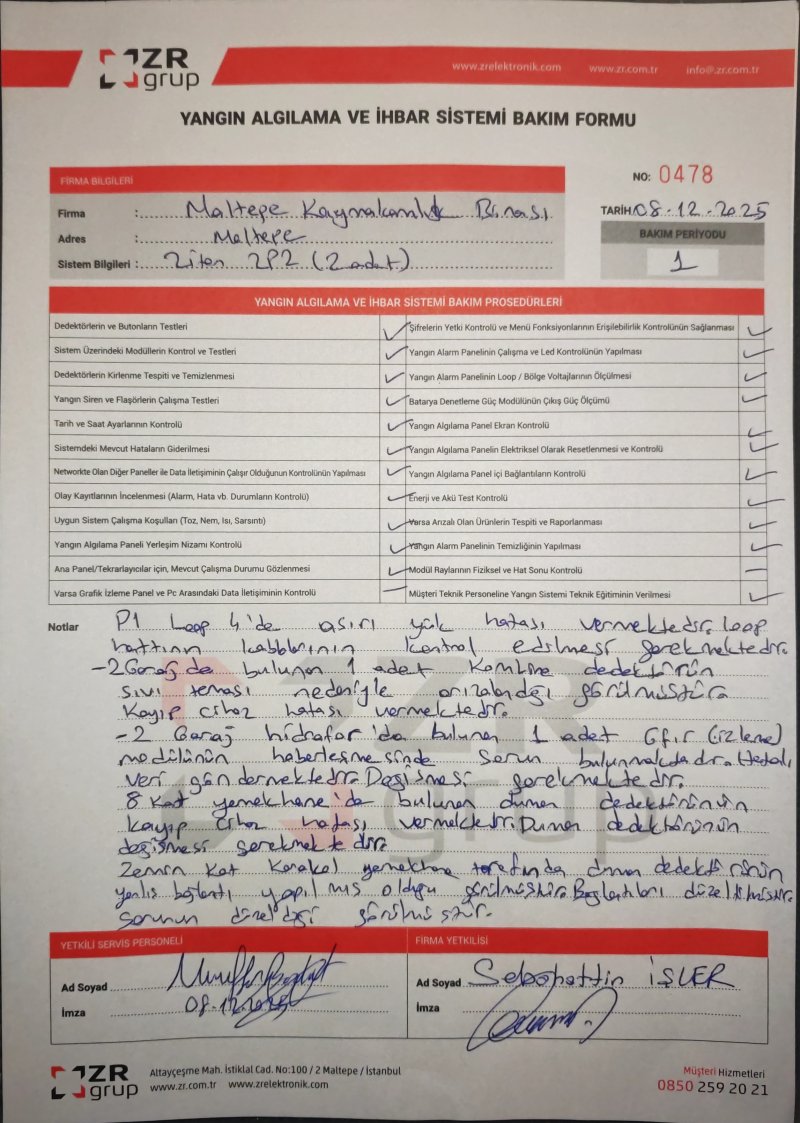 ZR
grup
www.zrelektronik.com www.zr.com.tr info@.zr.com.tr
YANGIN ALGILAMA VE İHBAR SİSTEMİ BAKIM FORMU
FİRMA BİLGİLERİ
NO: 0478
Firma : Maltepe Kaymakamlık Binası
TARİH 08.12.2025
Adres : Maltepe
BAKIM PERİYODU
Sistem Bilgileri : Ziton ZP2 (2 adet)
1
YANGIN ALGILAMA VE İHBAR SİSTEMİ BAKIM PROSEDÜRLERİ
Dedektörlerin ve Butonların Testleri ✓ Şifrelerin Yetki Kontrolü ve Menü Fonksiyonlarının Erişilebilirlik Kontrolünün Sağlanması ✓
Sistem Üzerindeki Modüllerin Kontrol ve Testleri ✓ Yangın Alarm Panelinin Çalışma ve Led Kontrolünün Yapılması ✓
Dedektörlerin Kirlenme Tespiti ve Temizlenmesi ✓ Yangın Alarm Panelinin Loop / Bölge Voltajlarının Ölçülmesi ✓
Yangın Siren ve Flaşörlerin Çalışma Testleri ✓ Batarya Denetleme Güç Modülünün Çıkış Güç Ölçümü ✓
Tarih ve Saat Ayarlarının Kontrolü ✓ Yangın Algılama Panel Ekran Kontrolü ✓
Sistemdeki Mevcut Hataların Giderilmesi ✓ Yangın Algılama Panelin Elektriksel Olarak Resetlenmesi ve Kontrolü ✓
Networkte Olan Diğer Paneller ile Data İletişiminin Çalışır Olduğunun Kontrolünün Yapılması ✓ Yangın Algılama Panel içi Bağlantıların Kontrolü ✓
Olay Kayıtlarının İncelenmesi (Alarm, Hata vb. Durumların Kontrolü) ✓ Enerji ve Akü Test Kontrolü ✓
Uygun Sistem Çalışma Koşulları (Toz, Nem, Isı, Sarsıntı) ✓ Varsa Arızalı Olan Ürünlerin Tespiti ve Raporlanması ✓
Yangın Algılama Paneli Yerleşim Nizamı Kontrolü ✓ Yangın Alarm Panelinin Temizliğinin Yapılması ✓
Ana Panel/Tekrarlayıcılar için, Mevcut Çalışma Durumu Gözlenmesi ✓ Modül Raylarının Fiziksel ve Hat Sonu Kontrolü —
Varsa Grafik İzleme Panel ve Pc Arasındaki Data İletişiminin Kontrolü — Müşteri Teknik Personeline Yangın Sistemi Teknik Eğitiminin Verilmesi ✓
Notlar P1 Loop 4'de aşırı yük hatası vermektedir. Loop
hattının kablolarının kontrol edilmesi gerekmektedir.
-2 Garaj da bulunan 1 adet Kombine dedektörün
sıvı teması nedeniyle arızalandığı görülmüştür.
Kayıp cihaz hatası vermektedir.
-2 Garaj hidrafor'da bulunan 1 adet (izleme)
modülünün haberleşmesinde sorun bulunmaktadır. Hatalı
veri göndermektedir. Değişmesi gerekmektedir.
8 Kat yemekhane'de bulunan duman dedektörünün
kayıp cihaz hatası vermektedir. Duman dedektörünün
değişmesi gerekmektedir.
Zemin Kat Karakol yemekhane tarafında duman dedektörünün
yanlış bağlantı yapılmış olduğu görülmüştür. Bağlantıları düzeltilmiştir.
Sorunun düzeldiği görülmüştür.
YETKİLİ SERVİS PERSONELİ FİRMA YETKİLİSİ
Ad Soyad Ad Soyad Sebahattin İŞLER
İmza 08.12.2025 İmza
ZR
grup
Altayçeşme Mah. İstiklal Cad. No:100 / 2 Maltepe / İstanbul
www.zr.com.tr www.zrelektronik.com
Müşteri Hizmetleri
0850 259 20 21